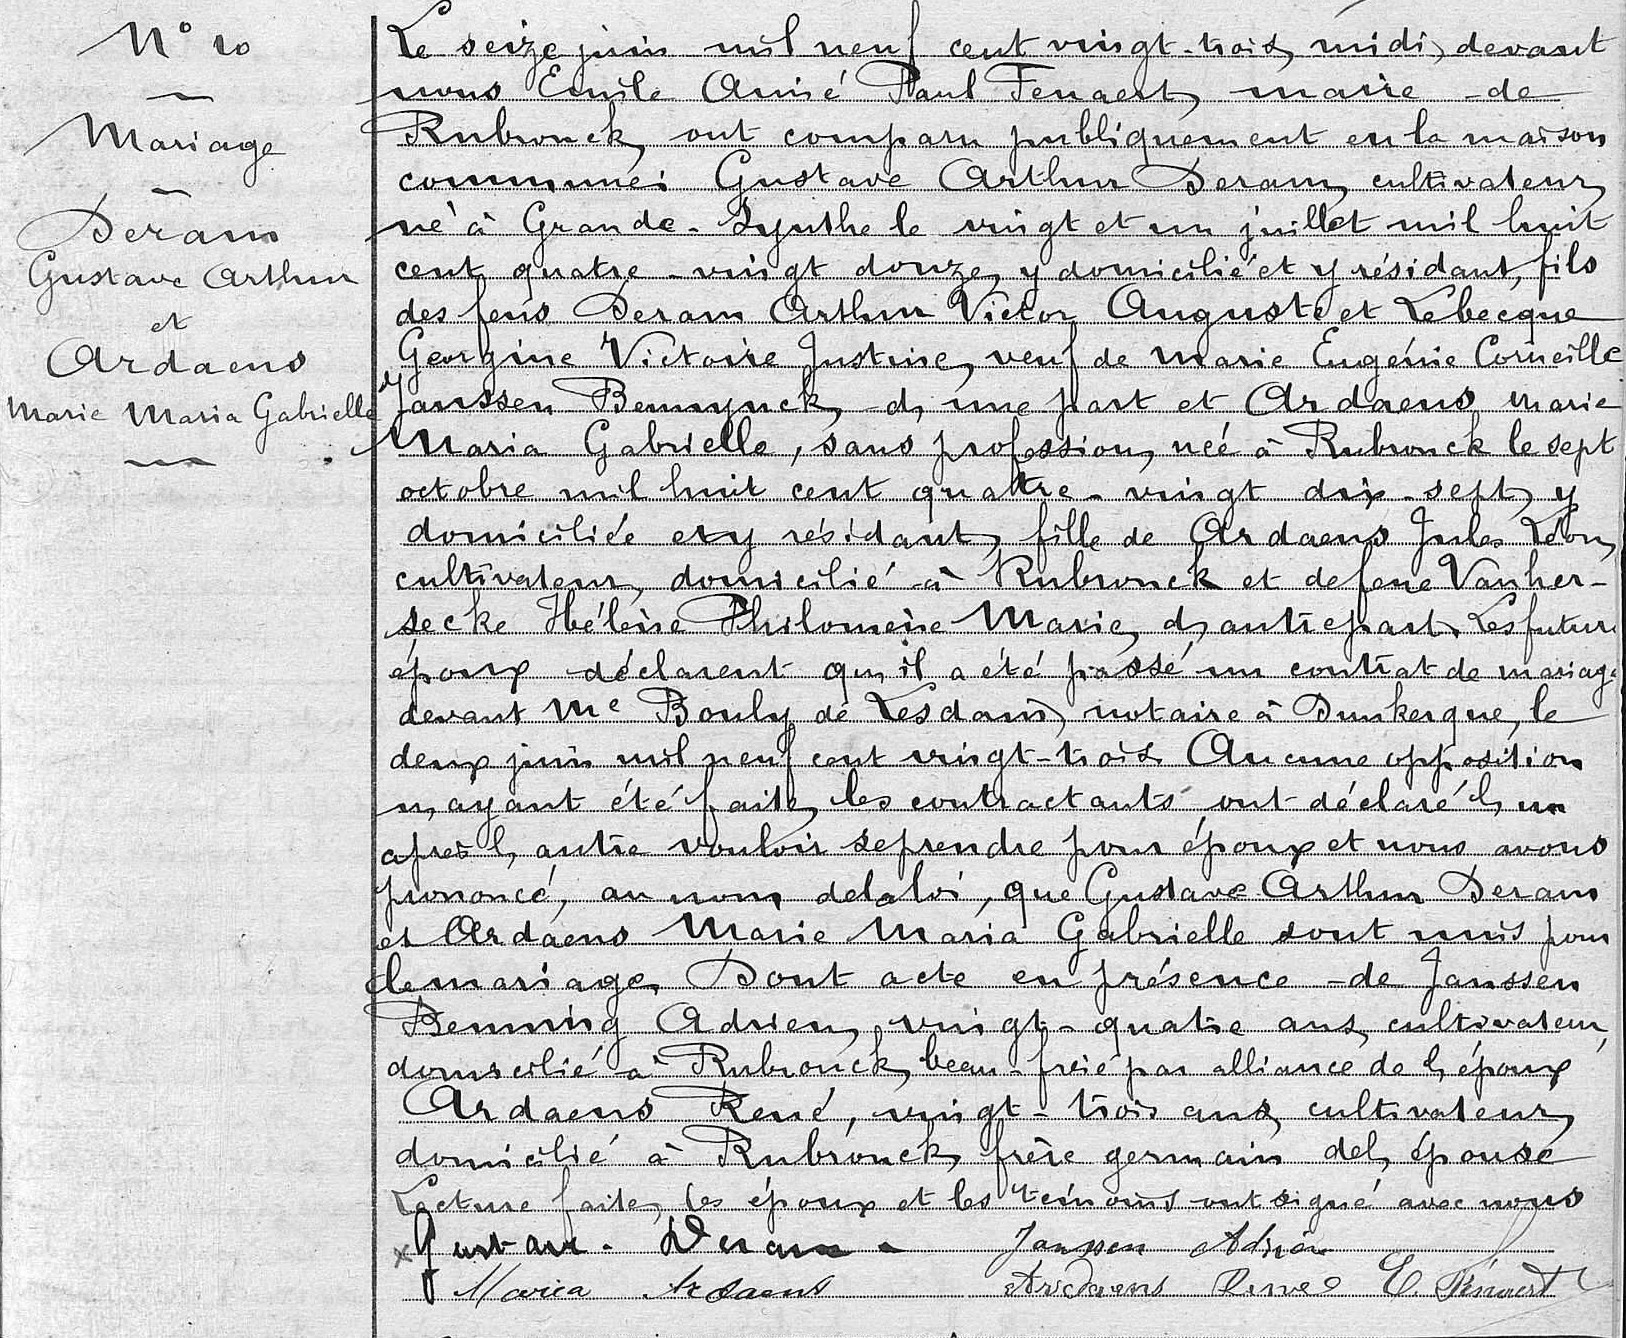 N° 10
Mariage
Deram
Gustave Arthur
et
Ardaens
Marie Maria Gabrielle
Le seize juin mil neuf cent vingt-trois, midi, devant
nous Emile Aimé Paul Fenaert, maire de
Rubrouck, ont comparu publiquement en la maison
commune: Gustave Arthur Deram, cultivateur,
né à Grande-Synthe le vingt et un juillet mil huit
cent quatre-vingt douze, y domicilié et y résidant, fils
des feus Deram Arthur Victor Auguste et Lebecque
Georgine Victoire Justine, veuf de Marie Eugénie Corneille
Janssen Bennynck, d, une part et Ardaens Marie
Maria Gabrielle, sans profession, née à Rubrouck le sept
octobre mil huit cent quatre-vingt dix-sept, y
domiciliée et y résidant, fille de Ardaens Jules Léon,
cultivateur, domicilié à Rubrouck et de feue Vanher-
secke Hélène Philomène Marie, d, autre part. Les futurs
époux déclarent qu, il a été passé un contrat de mariage
devant Me Bouly de Lesdain, notaire à Dunkerque, le
deux juin mil neuf cent vingt-trois Aucune opposition
n, ayant été faite, les contractants ont déclaré l, un
après l, autre vouloir se prendre pour époux et nous avons
prononcé, au nom de la loi, que Gustave Arthur Deram
et Ardaens Marie Maria Gabrielle sont unis pour
le mariage, Dont acte en présence de Janssen
Benning Adrien, vingt-quatre ans, cultivateur,
domicilié à Rubrouck, beau-frère par alliance de l, époux,
Ardaens René, vingt-trois ans, cultivateur,
domicilié à Rubrouck, frère germain de l, épouse
Lecture faite, les époux et les témoins ont signé avec nous
Gustave. Deram Janssen Adrien
Maria Ardaens Ardaens René E. Fénaert